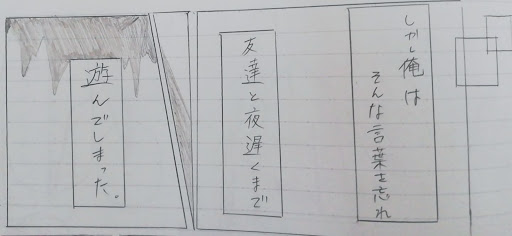 しかし俺は
そんな言葉を忘れ
友達と夜遅くまで
遊んでしまった。